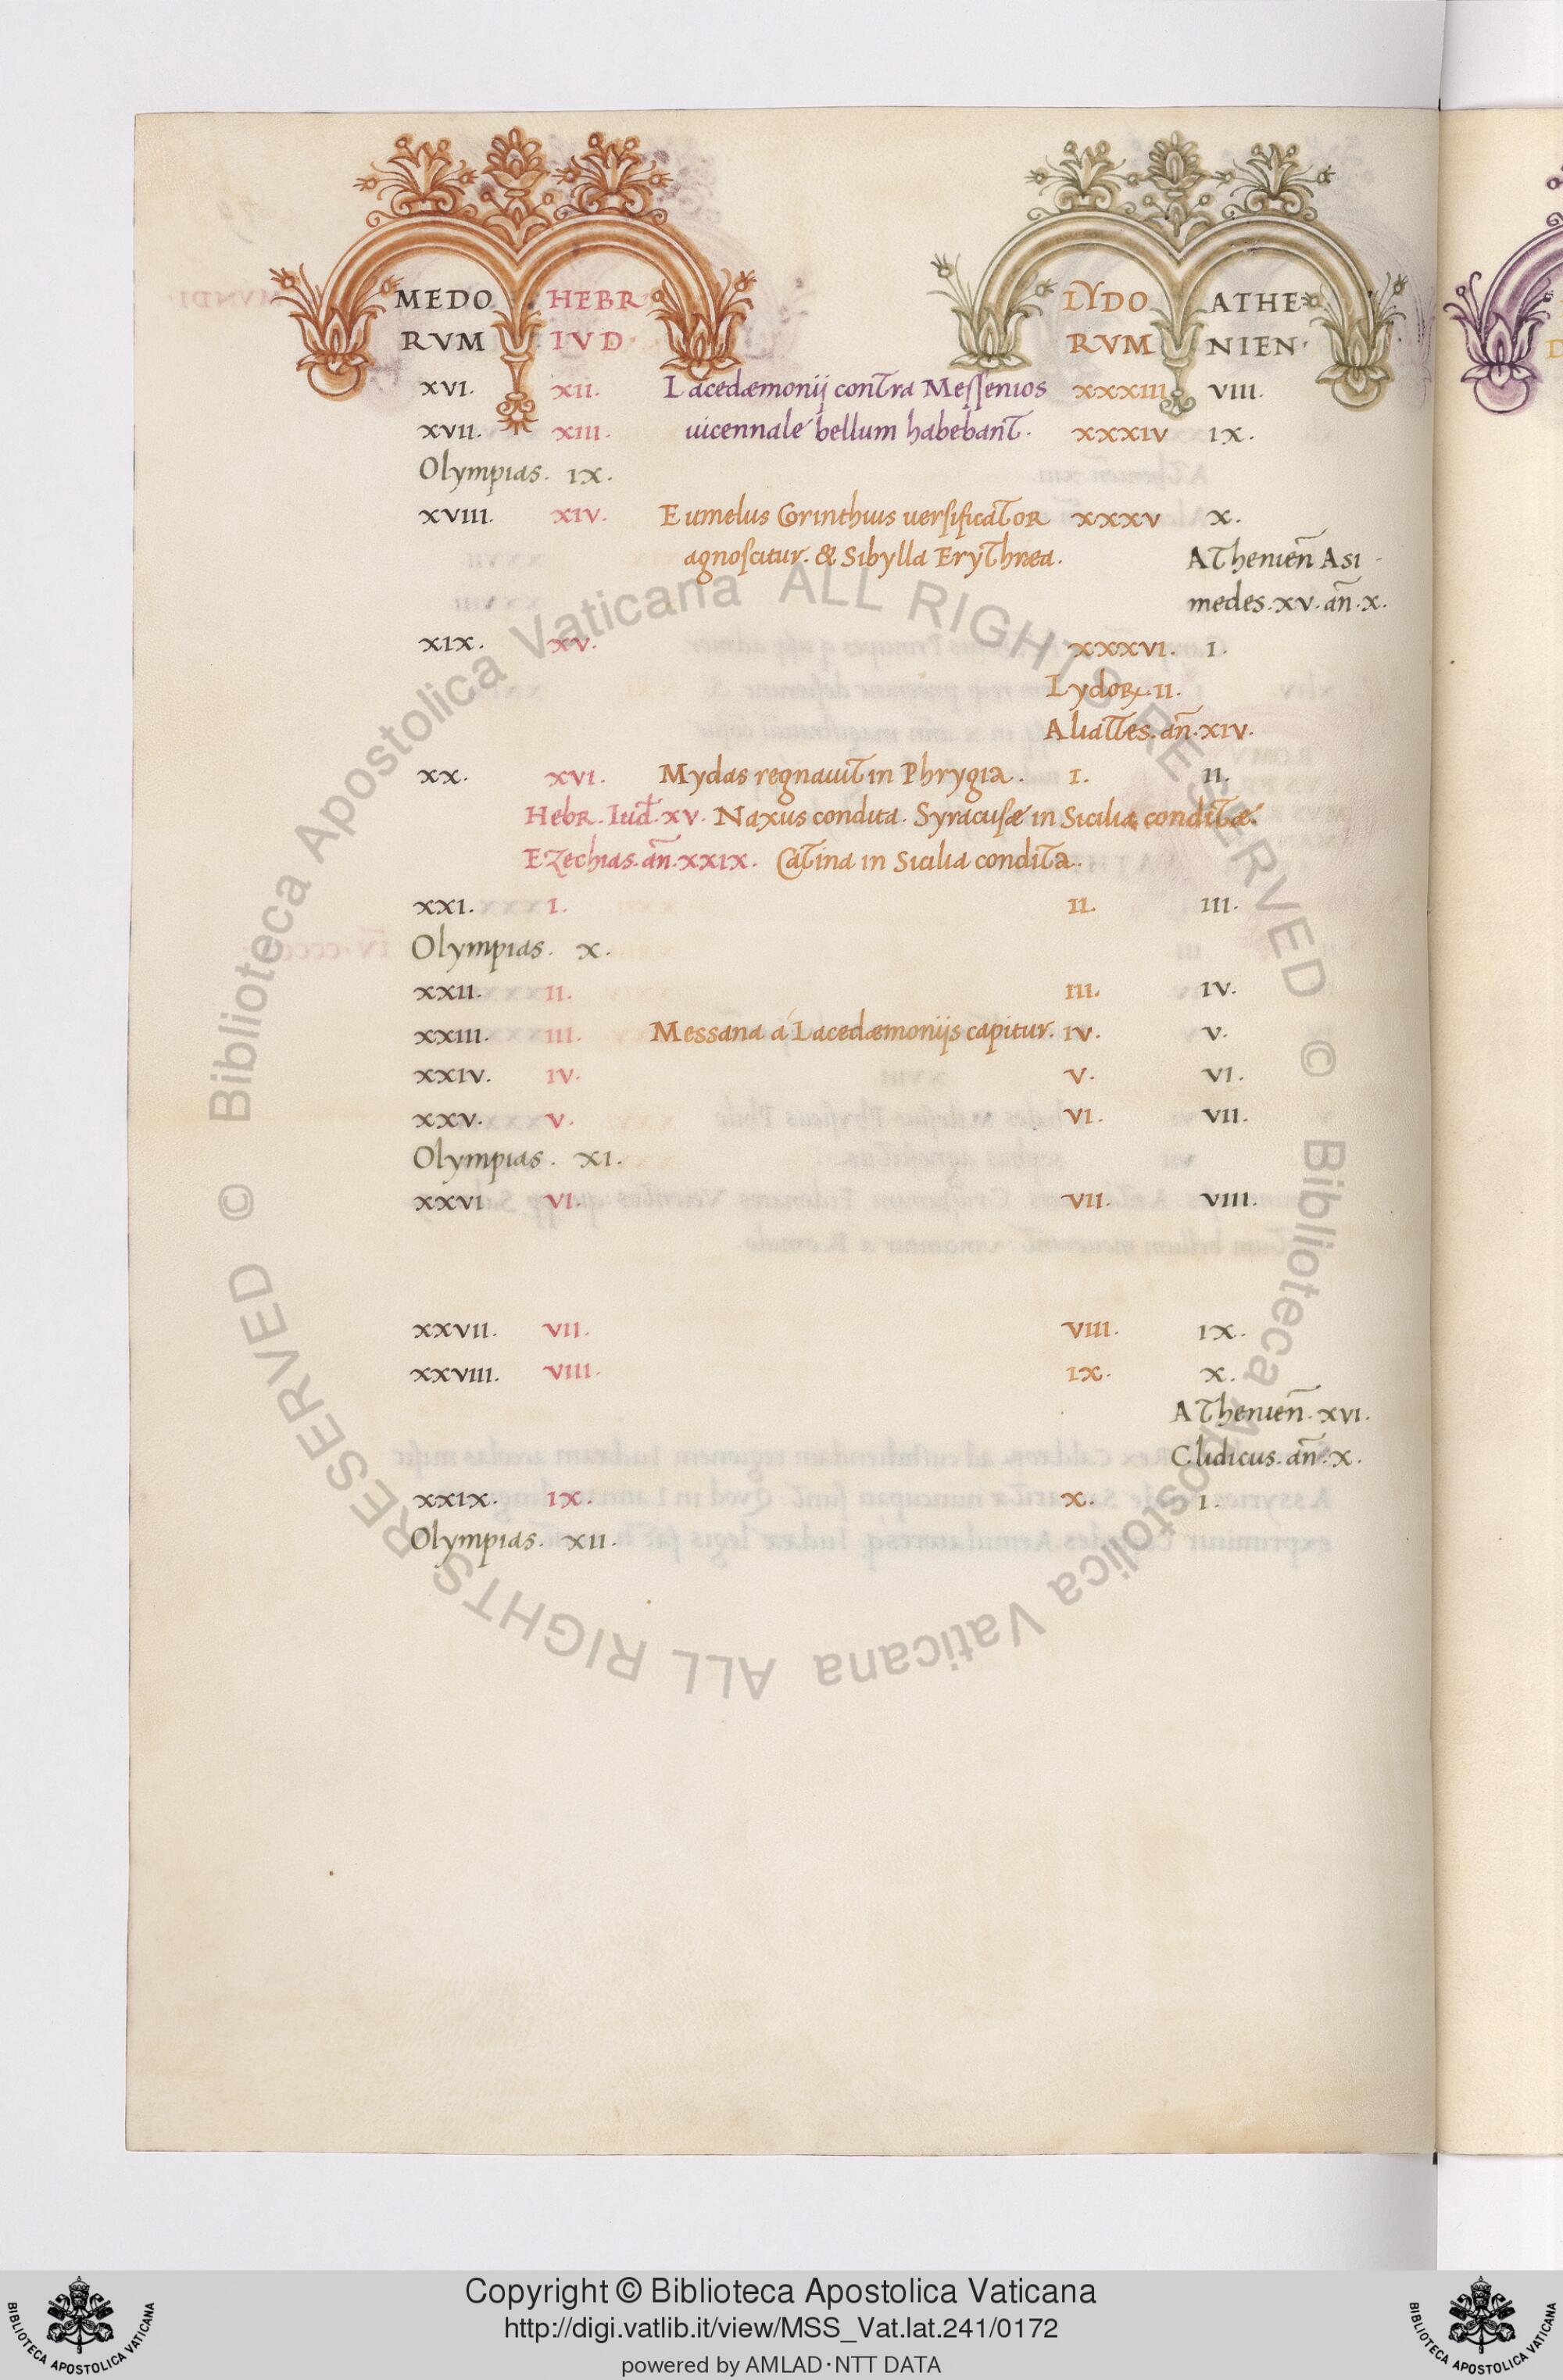 MEDO HEBR LYDO ATHE
RVM IVD· RVM NIEN·
XVI. XII. Lacedæmonij contra Meſſenios XXXIII VIII.
XVII. XIII. uicennale bellum habebant. XXXIV IX.
Olympias. IX.
XVIII. XIV. Eumelus Corinthius uerſificator XXXV X.
agnoſcitur. & Sibylla Erythræa. Athenien̄ Asi-
medes. XV. an̄. X.
XIX. XV. XXXVI. I.
Lydoꝝ. II.
Aliattes. an̄. XIV.
XX. XVI. Mydas regnauit in Phrygia. I. II.
Hebr. Iud. XV. Naxus condita. Syracuſæ in Sicilia conditæ.
Ezechias. an̄. XXIX. Catina in Sicilia condita.
XXI. I. II. III.
Olympias. X.
XXII. II. III. IV.
XXIII. III. Messana á Lacedæmonijs capitur. IV. V.
XXIV. IV. V. VI.
XXV. V. VI. VII.
Olympias. XI.
XXVI VI. VII. VIII.
XXVII. VII. VIII. IX.
XXVIII. VIII. IX. X.
Athenien̄. XVI.
Clidicus. an̄. X.
XXIX. IX. X. I.
Olympias. XII.
© Biblioteca Apostolica Vaticana ALL RIGHTS RESERVED
© Biblioteca Apostolica Vaticana ALL RIGHTS RESERVED
Copyright © Biblioteca Apostolica Vaticana
http://digi.vatlib.it/view/MSS_Vat.lat.241/0172
powered by AMLAD·NTT DATA
BIBLIOTECA APOSTOLICA VATICANA
BIBLIOTECA APOSTOLICA VATICANA